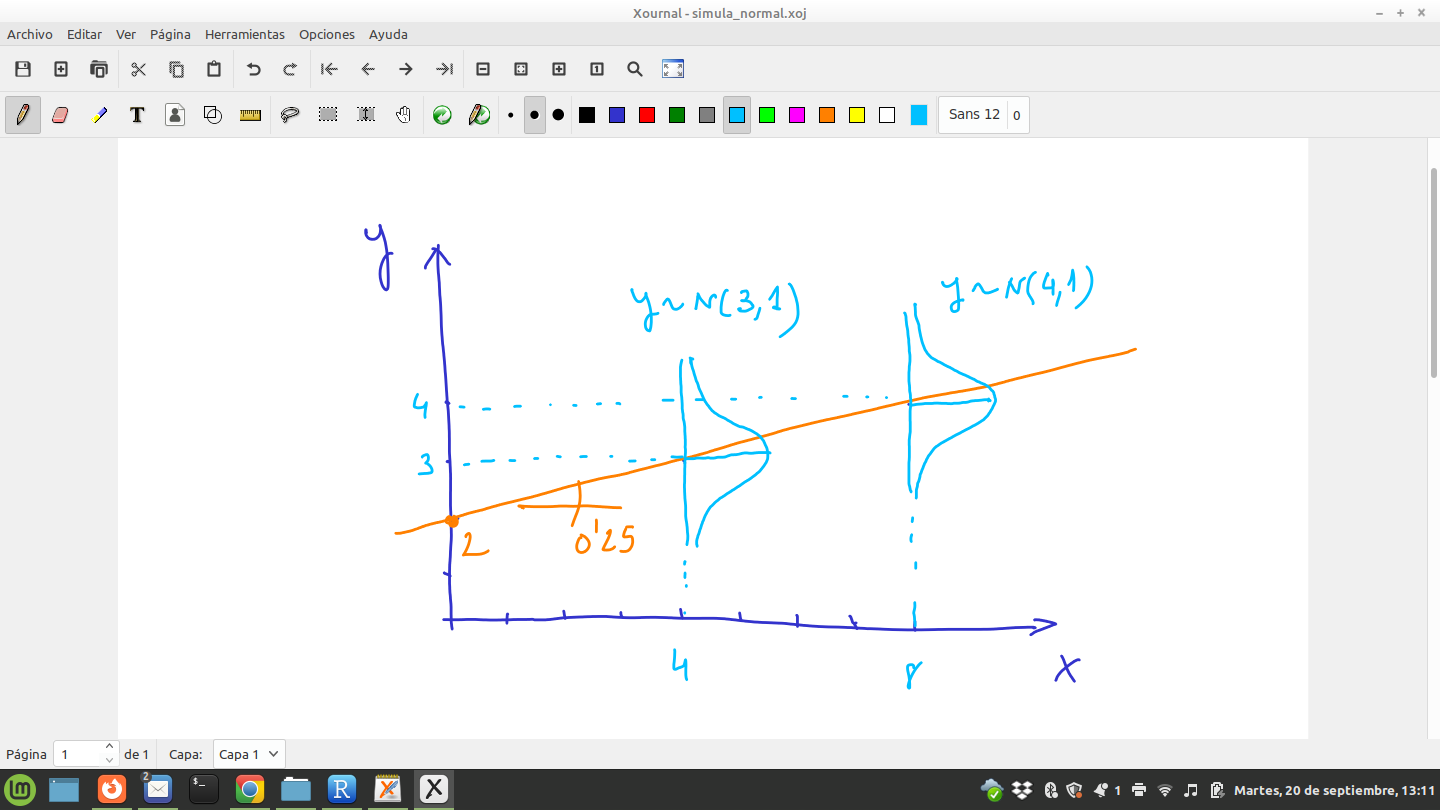 Xournal - simula_normal.xoj
Archivo Editar Ver Página Herramientas Opciones Ayuda
T Sans 12 0
y
y~N(3,1)
y~N(4,1)
4
3
2
0'25
4
8
x
Página 1 de 1 Capa: Capa 1
2
$_
R
X
1
Martes, 20 de septiembre, 13:11